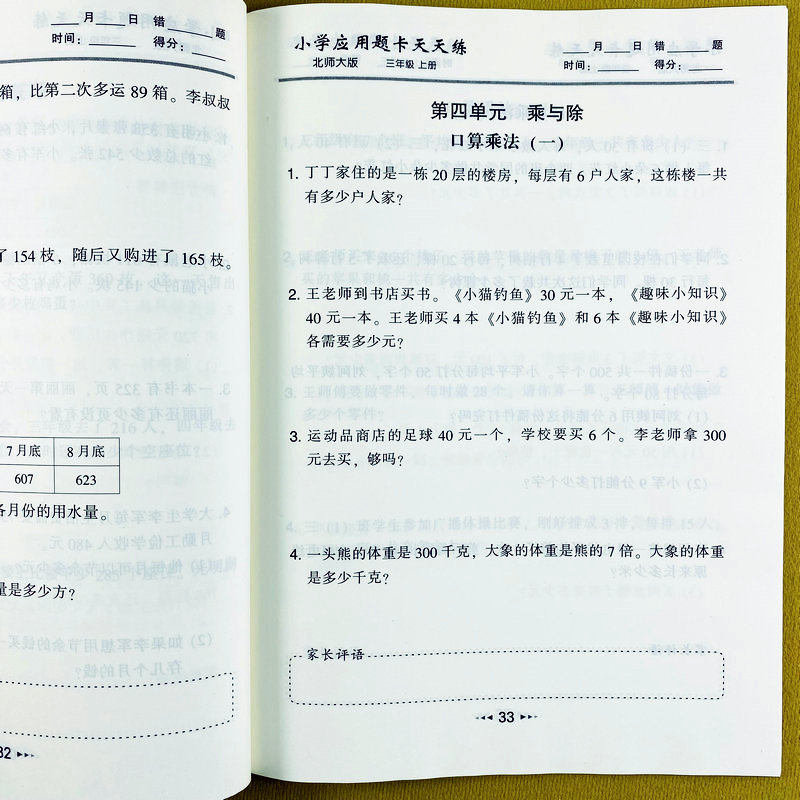 月 日 错 题
时间： 得分：
箱，比第二次多运 89 箱。李叔叔
了 154 枝，随后又购进了 165 枝。
7 月底 8 月底
607 623
各月份的用水量。
量是多少方？
32
小学应用题卡天天练
北师大版 三年级 上册
月 日 错 题
时间： 得分：
第四单元 乘与除
口算乘法（一）
1. 丁丁家住的是一栋 20 层的楼房，每层有 6 户人家，这栋楼一共
有多少户人家？
2. 王老师到书店买书。《小猫钓鱼》30 元一本，《趣味小知识》
40 元一本。王老师买 4 本《小猫钓鱼》和 6 本《趣味小知识》
各需要多少元？
3. 运动品商店的足球 40 元一个，学校要买 6 个。李老师拿 300
元去买，够吗？
4. 一头熊的体重是 300 千克，大象的体重是熊的 7 倍。大象的体重
是多少千克？
家长评语
33